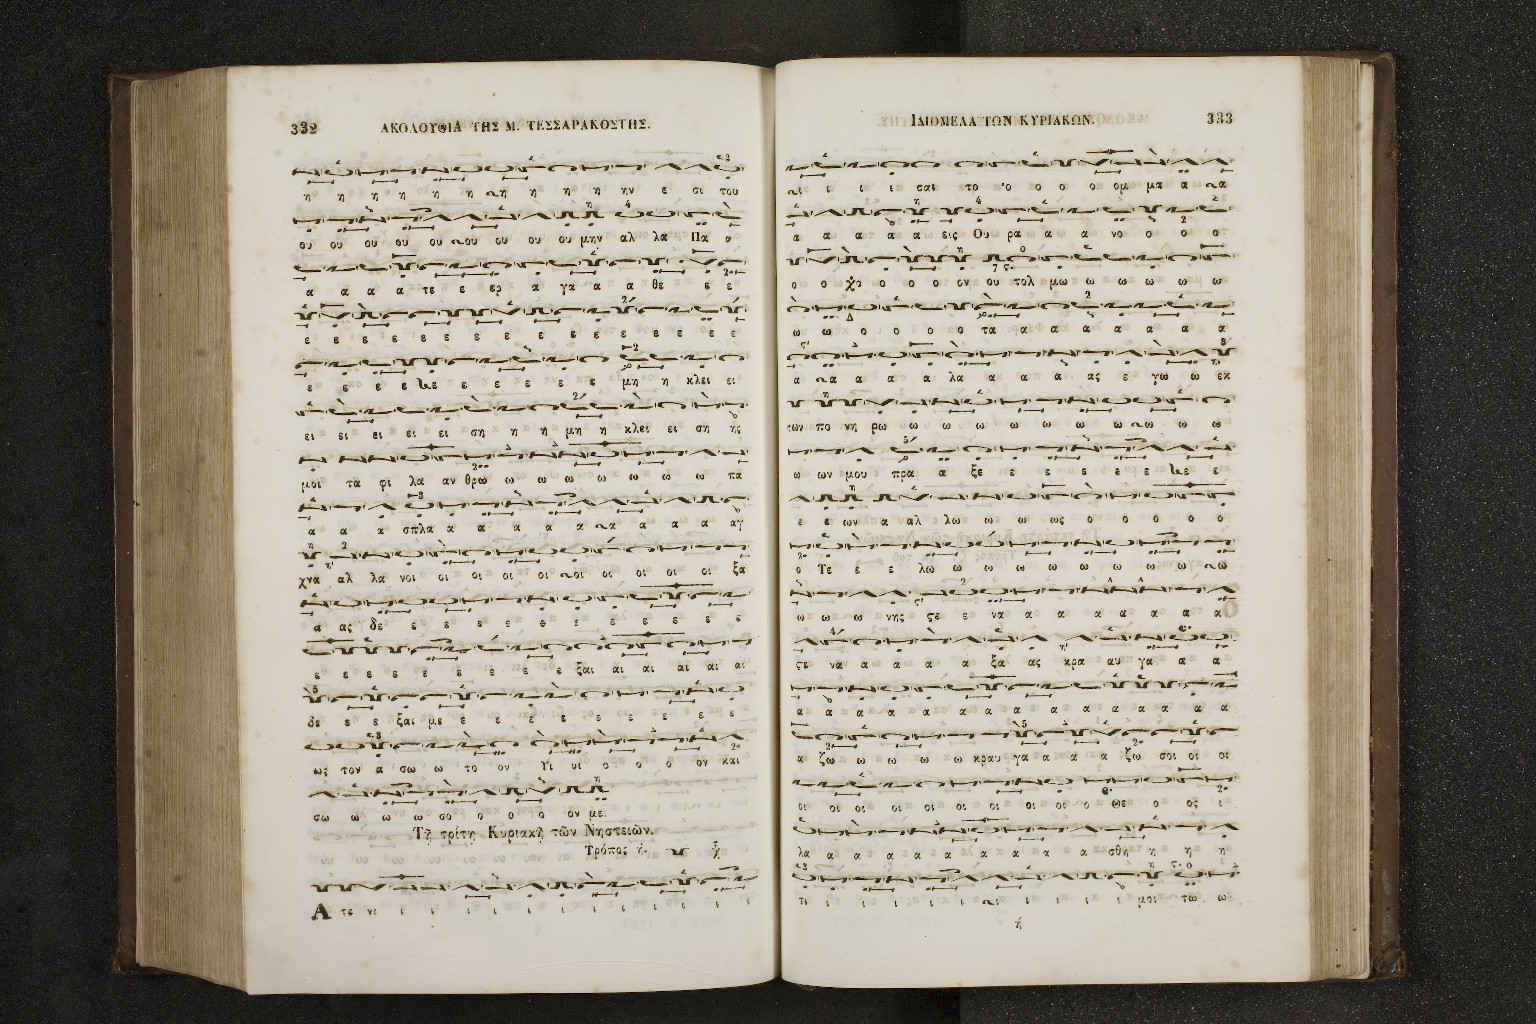 332 ΑΚΟΛΟΥΘΙΑ ΤΗΣ Μ. ΤΕΣΣΑΡΑΚΟΣΤΗΣ.
η η η η η η η η η η ην ε σι του
ου ου ου ου ου ου ου ου ου μην αλ λα Πα α
α α α α τε ε ερ α γα α α θε ε ε
ε ε ε ε ε ε ε ε ε ε ε ε ε ε ε
ε ε ε ε ε ε ε ε ε ε μη η κλει ει
ει ει ει ει ει ση η η μη η κλει ει ση ης
μοι τα φι λα αν θρω ω ω ω ω ω ω ω πα
α α α σπλα α α α α α α α α α αγ
χνα αλ λα νοι οι οι οι οι οι οι οι οι οι ξα
α ας δε ε ε ε ε ε ε ε ε ε ε
ε ε ε ε ε ε ε ε ε ξαι αι αι αι αι αι
δε ε ε ξαι με ε ε ε ε ε ε ε ε
ως τον α σω ω το ον Υι υι ο ο ο ον και
σω ω ω ω σο ο ο ο ον με.
Τῇ τρίτῃ Κυριακῇ τῶν Νηστειῶν.
Τρόπος ή.
Α τε νι ι ι ι ι ι ι ι ι ι ι ι ι
ΙΔΙΟΜΕΛΑ ΤΩΝ ΚΥΡΙΑΚΩΝ. 333
ι ι ι ι σαι το ο ο ο ο ομ μα α α
α α α α α α εις Ου ρα α α α νο ο ο ο
ο ο χο ο ο ο ον ου τολ μω ω ω ω ω ω
ω ω ο ο ο ο τα α α α α α α α
α α α α α λα α α α α ας ε γω ω εκ
των πο νη ρω ω ω ω ω ω ω ω ω ω ω
ω ων μου πρα α ξε ε ε ε ε ε ε ε ε
ε ε ων α αλ λω ω ω ω ως ο ο ο ο ο
ο Τε ε ε λω ω ω ω ω ω ω ω ω ω
ω ω ω νης ςε ε να α α α α α α α
ςε να α α α α ξα ας κρα αυ γα α α
α α α α α α α α α α α α α α α
α ζω ω ω ω ω κραυ γα α α α ζω σοι οι οι
οι οι οι οι οι οι οι οι οι ο Θε ο ος ι
λα α α α α α α α α α α σθη η η η
τι ι ι ι ι ι ι ι ι ι μοι τω ω